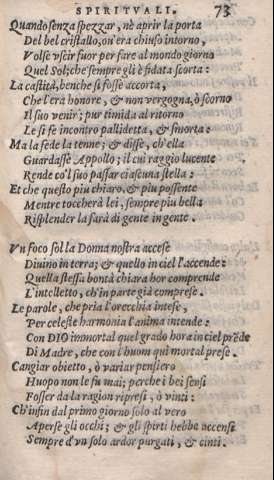 SPIRITVALI. 73
Quando senza spezzar, nè aprir la porta
Del bel cristallo, ou'era chiuso intorno,
Volse vscir fuor per fare al mondo giorno
Quel Sol; che sempre gli è fidata scorta:
La castità, benche si fosse accorta,
Che l'era honore, & non vergogna, ò scorno
Il suo venir; pur timida al ritorno
Le si fe incontro pallidetta, & smorta:
Ma la fede la tenne; & disse, ch'ella
Guardasse Appollo; il cui raggio lucente
Rende co'l suo passar ciascuna stella:
Et che questo piu chiaro, & piu possente
Mentre toccherà lei, sempre piu bella
Risplender la farà di gente in gente.
Vn foco sol la Donna nostra accese
Diuino in terra; & quello in ciel l'accende:
Quella stessa bontà chiara hor comprende
L'intelletto, ch'in parte già comprese.
Le parole, che pria l'orecchia intese,
Per celeste harmonia l'anima intende:
Con DIO immortal quel grado hora in ciel prēde
Di Madre, che con l'huom quì mortal prese.
Cangiar obietto, ò variar pensiero
Huopo non le fu mai; perche i bei sensi
Fosser da la ragion ripresi, ò vinti:
Ch'insin dal primo giorno solo al vero
Aperse gli occhi; & gli spirti hebbe accensi
Sempre d'vn solo ardor purgati, & cinti.